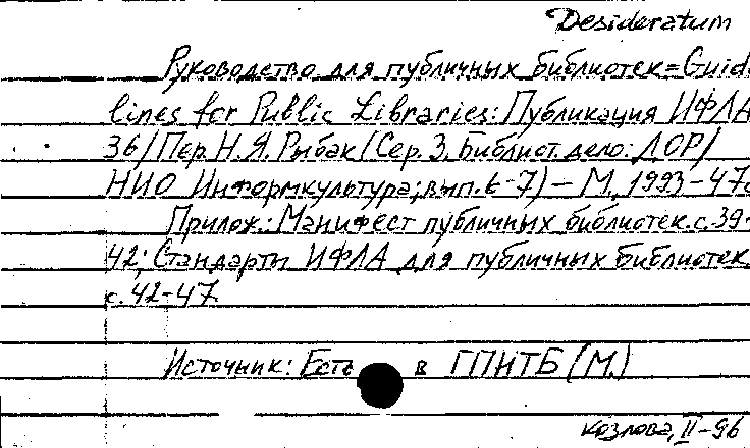 Desideratum
Руководство для публичных библиотек = Guide
lines for Public Libraries: Публикация ИФЛА
36/Пер. Н.Я. Рыбак (Сер. 3. Библиот. дело: ЛОР/
НИО Информкультура; вып. 6-7) – М., 1993 – 47с
Прилож.: Манифест публичных библиотек. с. 39-
42; Стандарты ИФЛА для публичных библиотек
с. 42-47.
Источник: Есть в ГПНТБ (М.)
Козлова, II-96